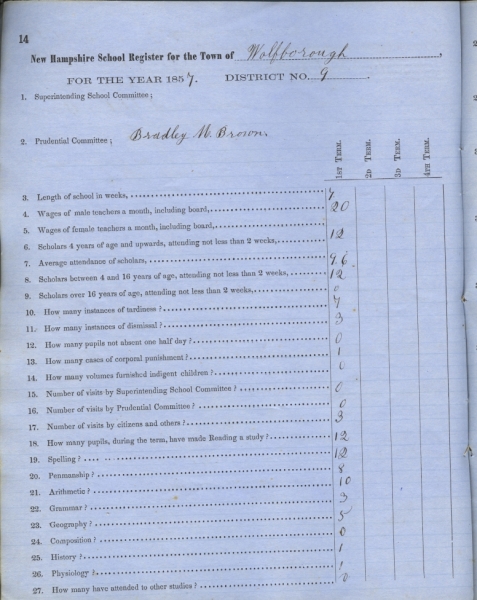 14
New Hampshire School Register for the Town of Wolfborough,
FOR THE YEAR 1857. DISTRICT NO. 9.
1. Superintending School Committee;
2. Prudential Committee; Bradley M. Brown.
1ST TERM. 2D TERM. 3D TERM. 4TH TERM.
3. Length of school in weeks, 7
4. Wages of male teachers a month, including board, 20
5. Wages of female teachers a month, including board,
6. Scholars 4 years of age and upwards, attending not less than 2 weeks, 12
7. Average attendance of scholars, 9.6
8. Scholars between 4 and 16 years of age, attending not less than 2 weeks, 12
9. Scholars over 16 years of age, attending not less than 2 weeks, 0
10. How many instances of tardiness? 7
11. How many instances of dismissal? 3
12. How many pupils not absent one half day? 0
13. How many cases of corporal punishment? 1
14. How many volumes furnished indigent children? 0
15. Number of visits by Superintending School Committee? 0
16. Number of visits by Prudential Committee? 0
17. Number of visits by citizens and others? 3
18. How many pupils, during the term, have made Reading a study? 12
19. Spelling? 12
20. Penmanship? 8
21. Arithmetic? 10
22. Grammar? 3
23. Geography? 5
24. Composition? 0
25. History? 1
26. Physiology? 1
27. How many have attended to other studies? 0